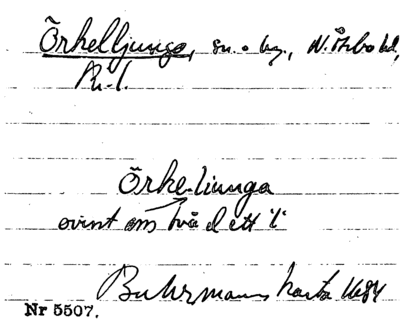 Örkelljunga, sn. o by., N. Åsbo hd,
Kr. l.
Örke-liunga
ovisst om två el ett "l"
Buhrmanns karta 1684
Nr 5507.